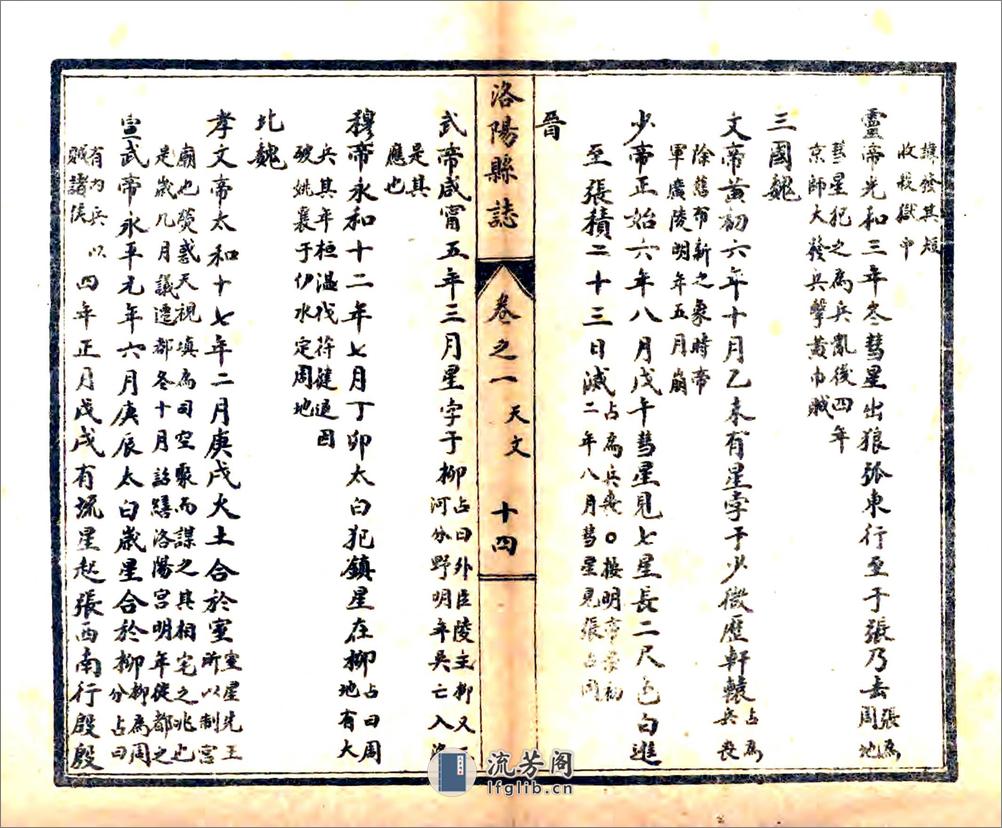 據發其短
收殺獄中
靈帝光和三年冬彗星出狼弧東行至于張乃去張為周地
彗星犯之為兵亂後四年
京師大發兵擊黃巾賊
三國魏
文帝黃初六年十月乙未有星孛于少微歷軒轅占為兵喪
除舊布新之象時帝
軍廣陵明年五月崩
少帝正始六年八月戊午彗星見七星長二尺色白進
至張積二十三日滅占為兵喪○按明帝景初
二年八月彗星見張占同
晉
洛陽縣誌
卷之一
天文
十四
武帝咸甯五年三月星孛于柳占曰外臣陵主柳又三
河分野明年吳亡入洛
是其
應也
穆帝永和十二年七月丁卯太白犯鎮星在柳占曰周地有大
兵其年桓溫伐苻健退因
破姚襄于伊水定周地
北魏
孝文帝太和十七年二月庚戌火土合於室室星先王所以制宮
廟也熒惑天視填為司空聚而謀之其相宅之兆也
是歲九月議遷都冬十月詔繕洛陽宮明年徙都之
宣武帝永平元年六月庚辰太白歲星合於柳柳為周分占曰
有內兵以
賊諸侯四年正月戊戌有流星起張西南行殷殷
流芳阁
lfglib.cn